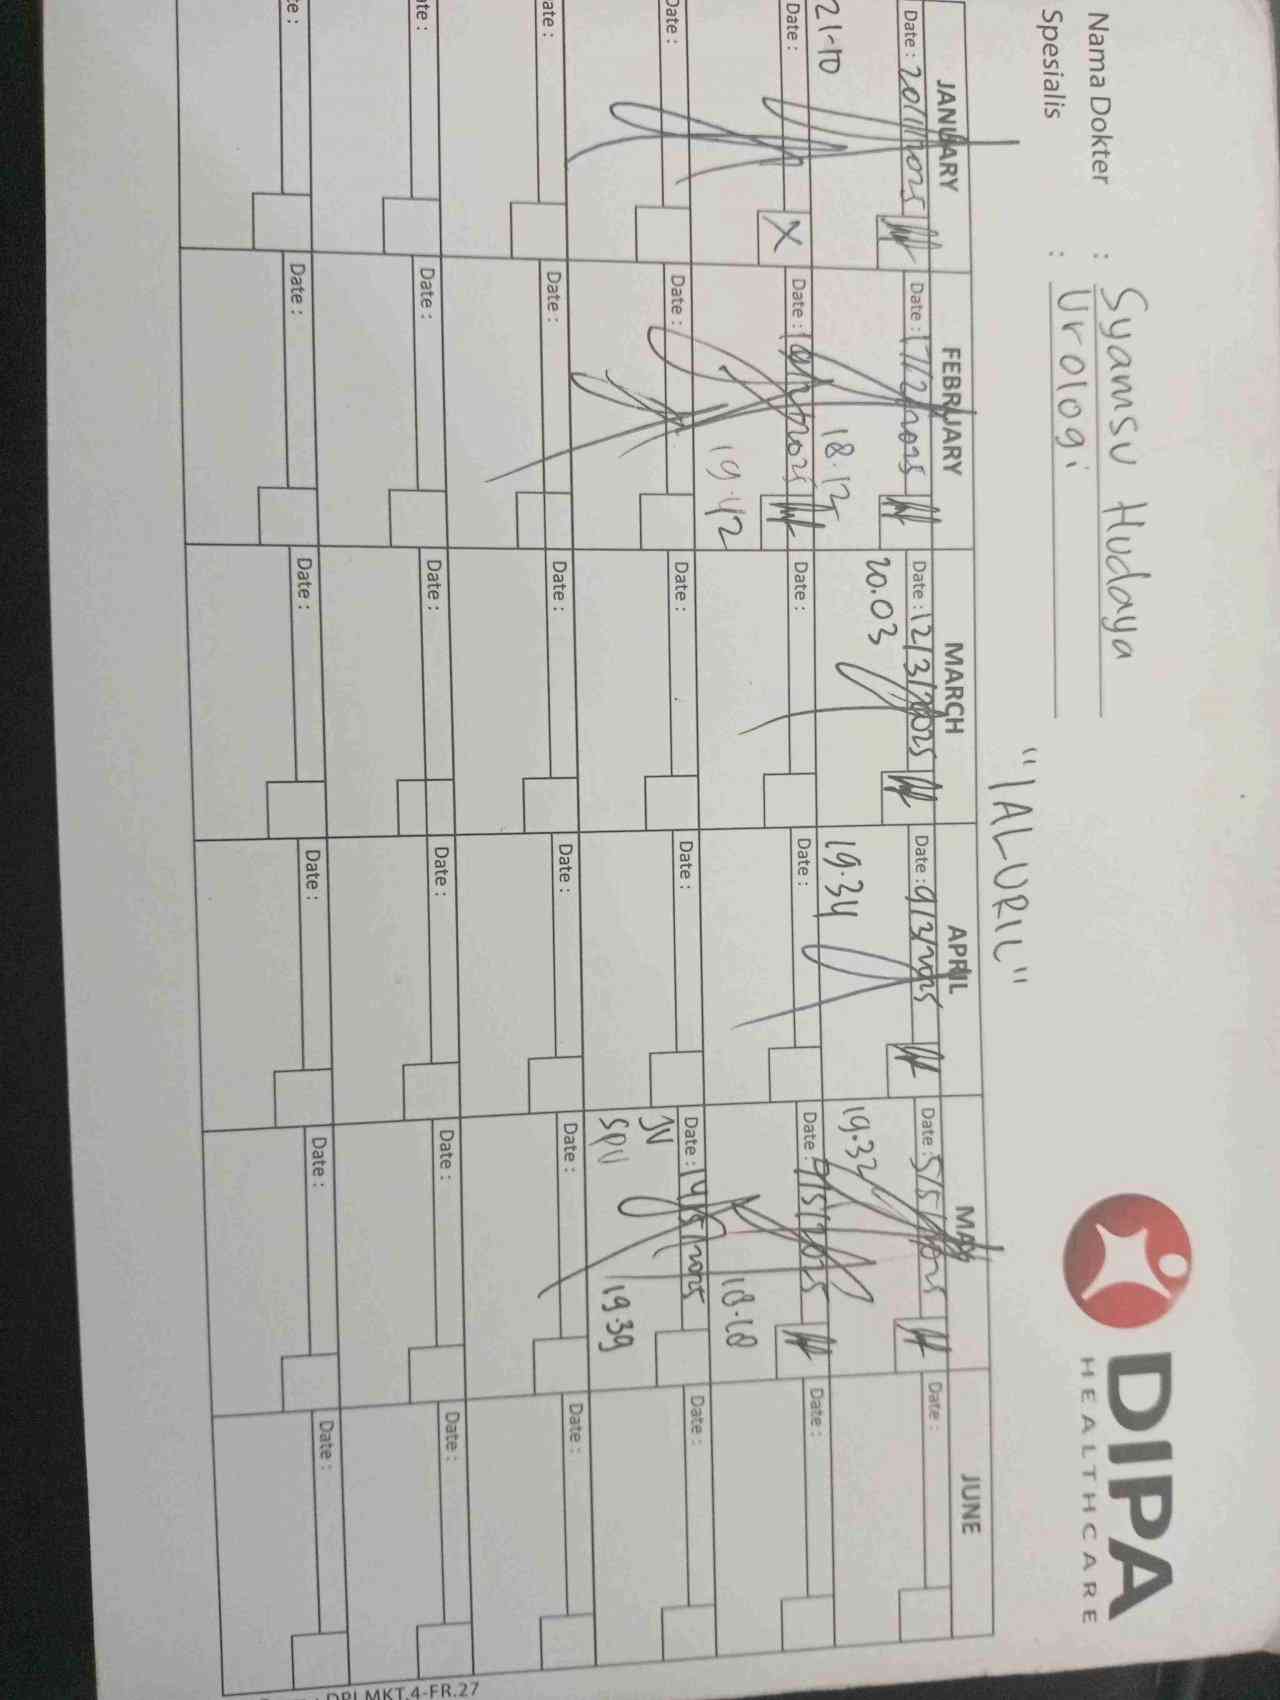 DIPA
HEALTHCARE
Nama Dokter : Syamsu Hudaya
Spesialis : Urologi
"IALURIL"
JANUARY FEBRUARY MARCH APRIL MAY JUNE
Date : 20/1/2025 Date : 17/2/2025 Date : 12/3/2025 Date : 9/3/2025 Date : 5/5/2025 Date :
21-10 18.12 20.03 19.34 19.32
Date : X Date : 19/2/2025 Date : Date : Date : 7/5/2025 Date :
19.42 18.18
Date : Date : Date : Date : Date : 14/5/2025 Date :
JV
SPV 19.39
ate : Date : Date : Date : Date : Date :
te : Date : Date : Date : Date : Date :
e : Date : Date : Date : Date : Date :
MKT.4-FR.27